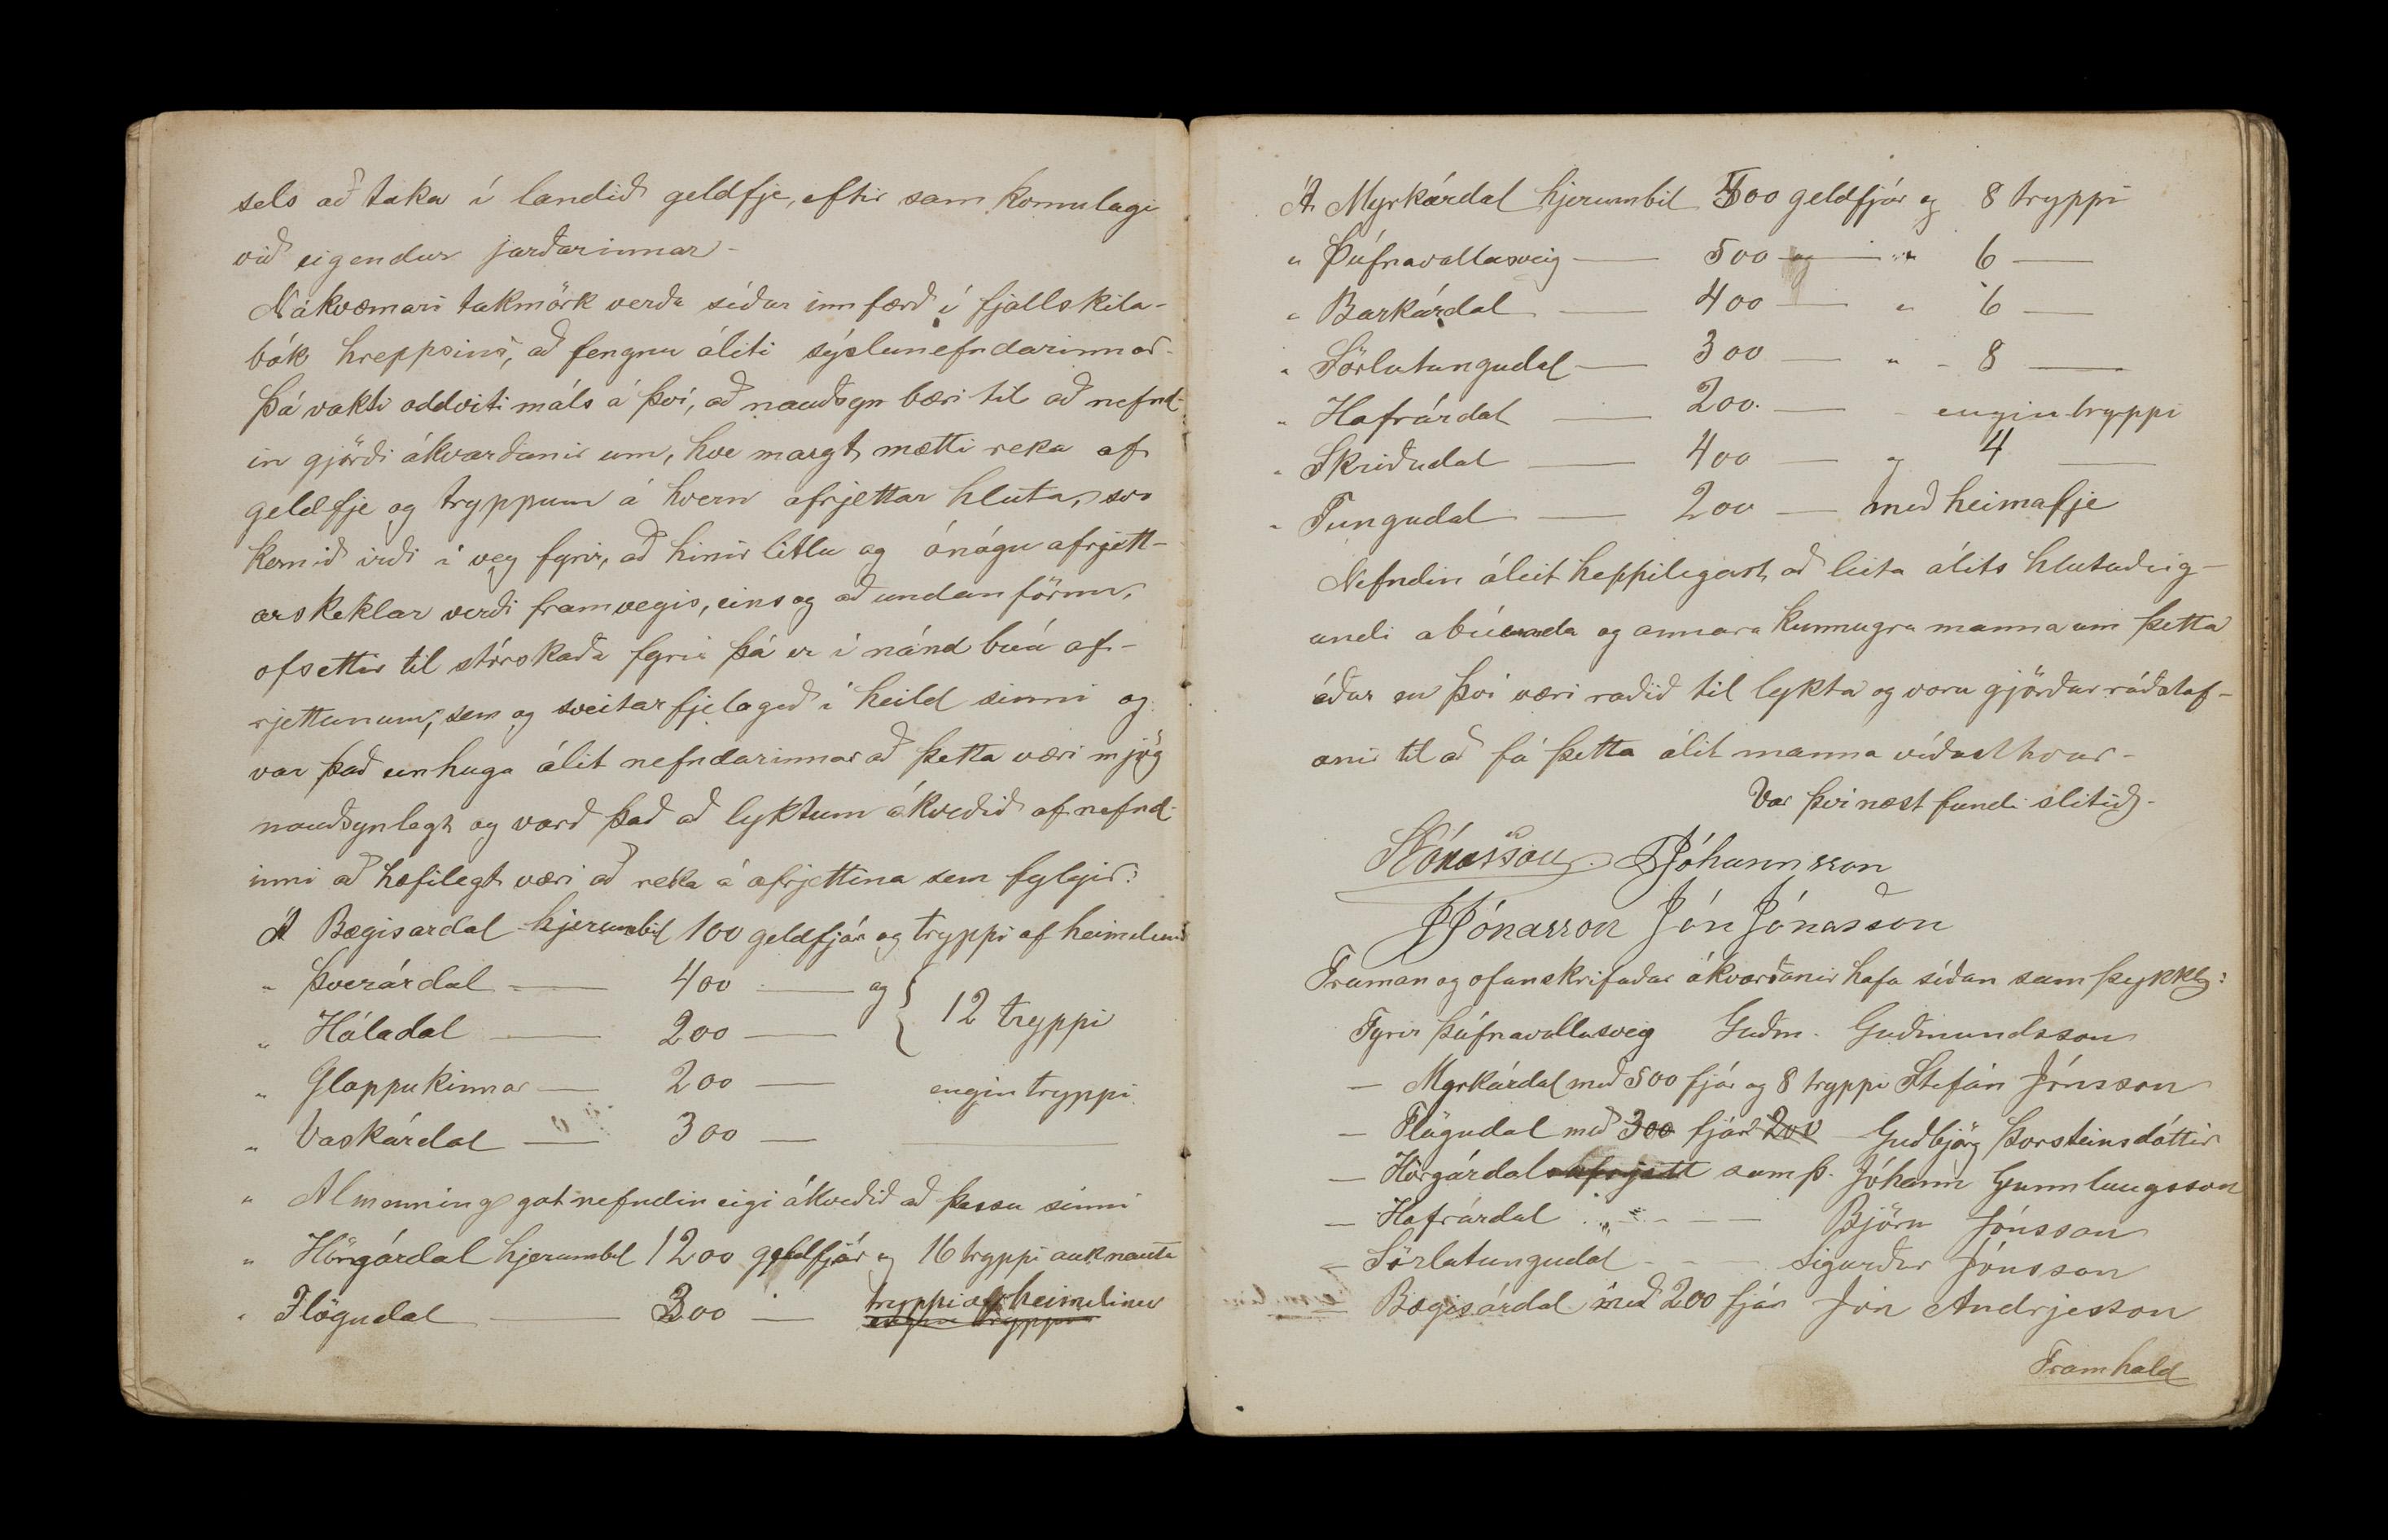 sels að taka í landið geldfje, eftir sam komulagi
við eigendur jarðarinnar -
Nákvæmari takmörk verða síðar innfærð í fjallskila-
bók hreppsins, að fengnu áliti sýslunefndarinnar -
Þá vakti oddviti máls á því, að nauðsyn bæri til að nefnd-
in gjörði ákvarðanir um, hve margt mætti reka af
geldfje og tryppum á hvern afrjettar hluta, svo
komið irði í veg fyrir, að hinir litlu og ónógu afrjett-
arskeklar verði framvegis, eins og að undanförnu,
ofsettir til stórskaða fyrir þá er í nánd búa af-
rjettunum, sem og sveitarfjelagið í heild sinni og
var það einhuga álit nefndarinnar að þetta væri mjög
nauðsynlegt og varð það að lyktum ákveðið af nefnd-
inni að hæfilegt væri að reka á afrjettina sem fylgir:
Á Bægisardal hjerumbil 100 geldfjár og tryppi af heimilinu
" Þverárdal — 400 — og { 12 tryppi
" Háladal — 200 —
" Glappukinnar — 200 — engin tryppi
" Vaskárdal — 300 — —
" Almenning gat nefndin eigi ákveðið að þessu sinni
" Hörgárdal hjerumbil 1200 geldfjár og 16 tryppi auk nauta
" Flögudal — 300 — tryppi af heimilinu
engin tryppi
Á Myrkárdal hjerumbil 500 geldfjár og 8 tryppi
" Þúfnavallasveig — 500 og — " 6 —
" Barkárdal — 400 — " 6 —
" Sörlatungudal — 300 — " - 8 —
" Hafrárdal — 200. — - engin tryppi
" Skriðudal — 400 — og 4 —
" Tungudal — 200 — með heimafje
Nefndin áleit heppilegast að leita álits hlutaðeig-
andi abúenda og annara kunnugra manna um þetta
áður en því væri raðið til lykta og voru gjörðar ráðstaf-
anir til að fá þetta álit manna víðast hvar -
Var því næst fundi slitið -
SJónasson. JJóhannsson
JJónasson Jón Jónasson
Framan og ofanskrifaðar ákvarðanir hafa síðan samþykkt:
Fyrir Þúfnavallasveig Guðm. Guðmundsson
— Myrkárdal með 500 fjár og 8 tryppi Stefán Jónsson
— Flögudal með 300 fjár 200 Guðbjörg Þorsteinsdóttir
— Hörgárdals afrjett samþ. Jóhann Gunnlaugsson
— Hafrárdal " - - — Björn Jónsson
— Sörlatungudal - - — Sigurður Jónsson
— Bægisárdal með 200 fjár Jón Andrjesson
Framhald